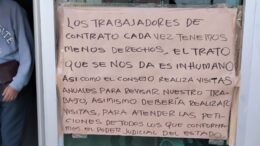 LOS TRABAJADORES DE
CONTRATO CADA VEZ TENEMOS
MENOS DERECHOS, EL TRATO
QUE SE NOS DA ES INHUMANO
ASI COMO EL CONSEJO REALIZA VISITAS
ANUALES PARA REVISAR NUESTRO TRA-
BAJO, ASIMISMO DEBERÍA REALIZAR
VISITAS, PARA ATENDER LAS PETI-
CIONES DE TODOS LOS QUE CONFORMA-
MOS EL PODER JUDICIAL DEL ESTADO.